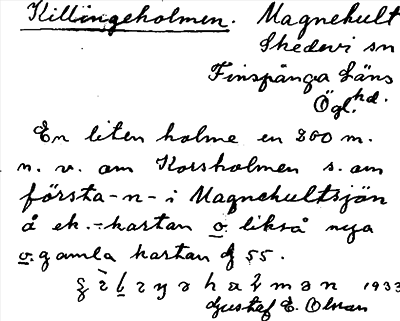 Killingeholmen. Magnehult
Skedevi sn
Finspånga Läns
hd.
Ögl.
En liten holme en 200 m.
n. v. om Korsholmen s. om
första-n- i Magnehultsjön
å ek.-kartan o. likså nya
o. gamla kartan 55.
1933
Gustaf E. Olsson